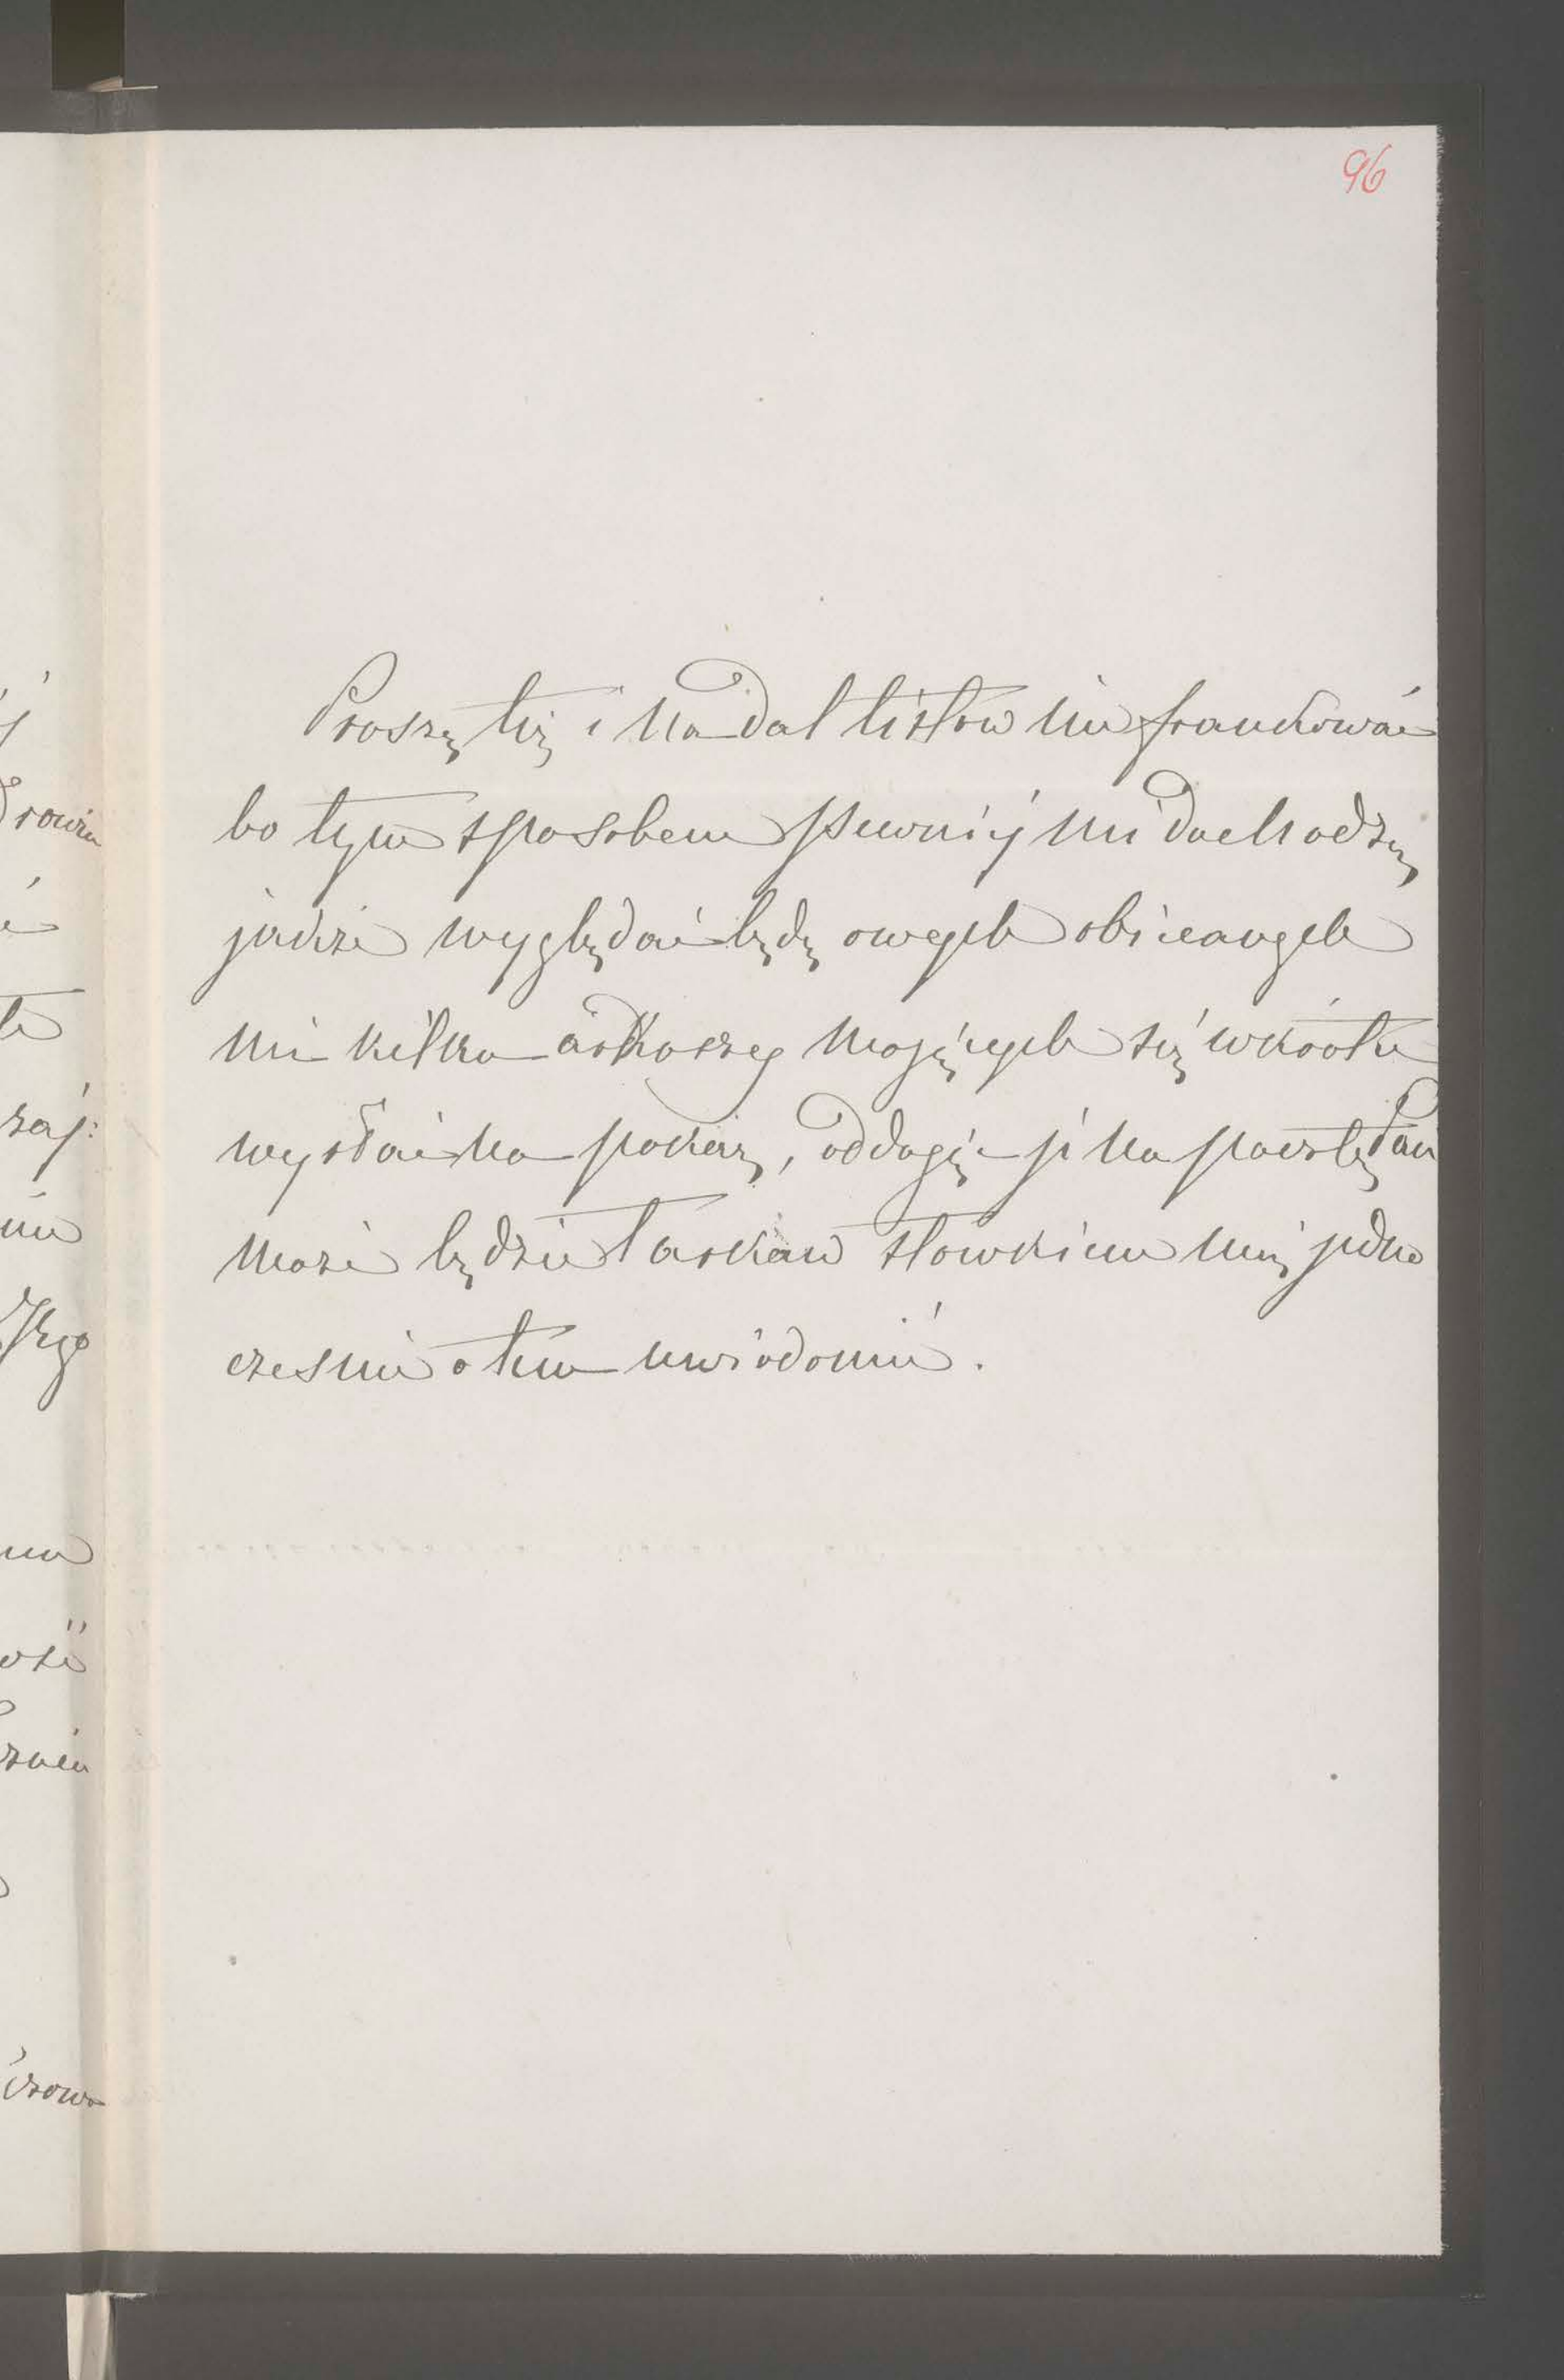 96
Proszę też i nadal listów nie frankować
bo tym sposobem pewniéj mi dochodzą,
jakże wyglądać będę owych obiecanych
mi kilka arkuszy mających się wkrótce
wysłać na pokaz, oddając je na pocztę Pan
może będzie łaskaw słówkiem mię jedno
cześnie o tem uwiadomić.